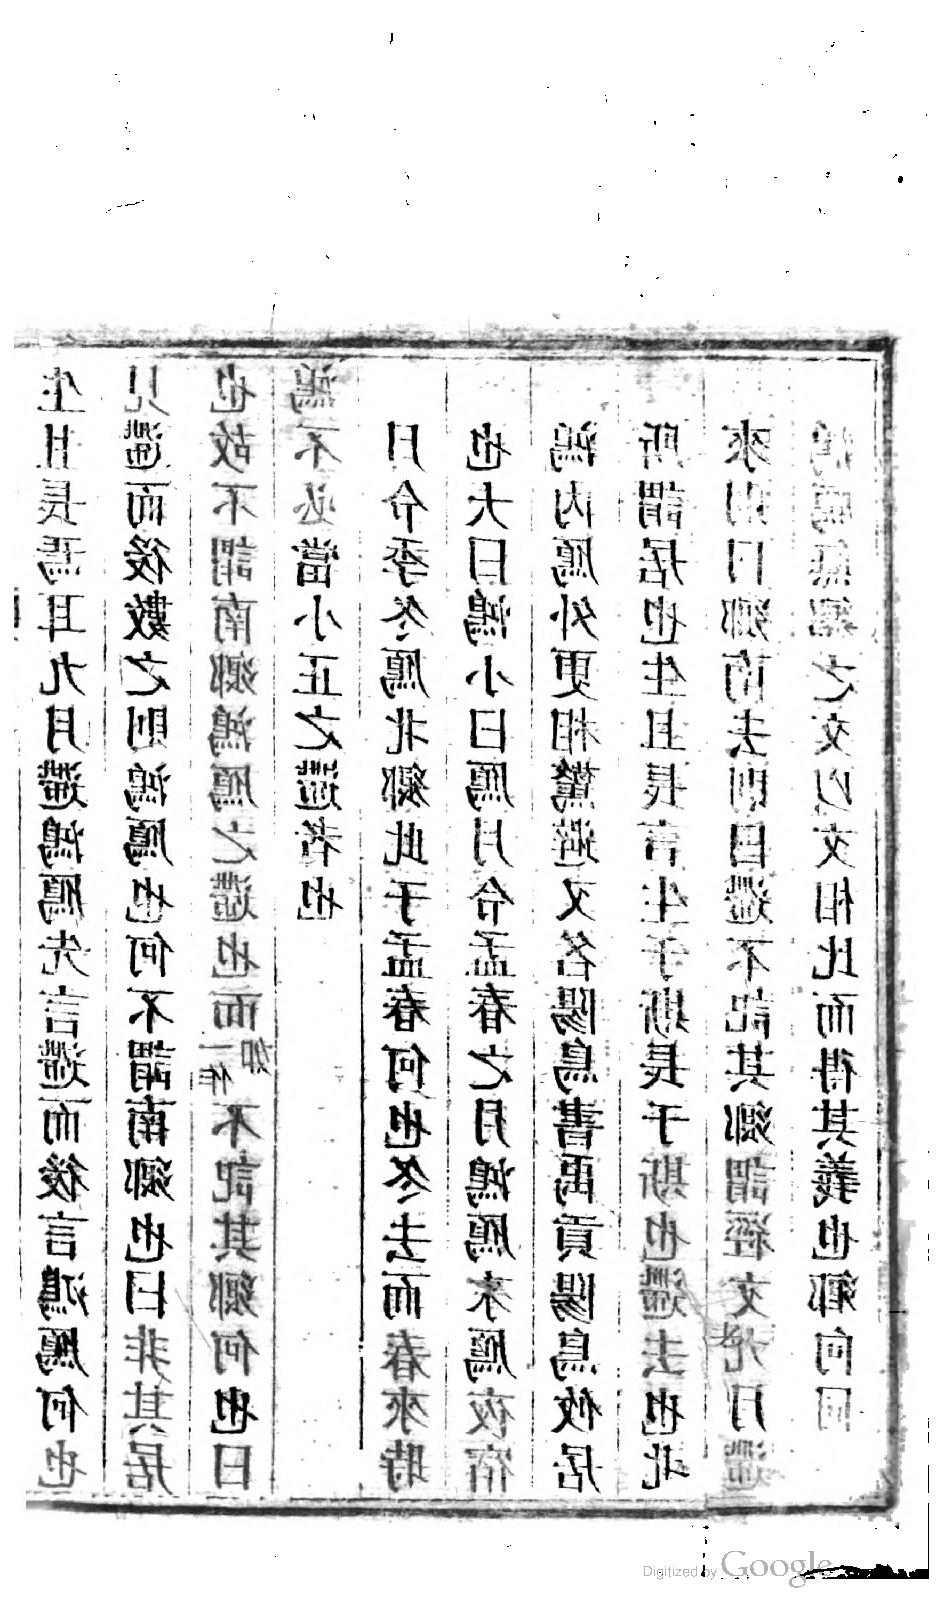 生且長焉耳九月遰鴻鴈先言遰而後言鴻鴈何也
見遰而後數之則鴻鴈也何不謂南鄉也曰非其居
也故不謂南鄉鴻鴈之遰也而一作如不記其鄉何也曰
鴻不必當小正之遰者也
月令季冬鴈北鄉此于孟春何也冬去而春來時
也大曰鴻小曰鴈月令孟春之月鴻鴈來鴈夜宿
鴻內鴈外更相驚避又名陽鳥書禹貢陽鳥攸居
所謂居也生且長言生于斯長于斯也遰去也北
來則曰鄉南去則曰遰不記其鄉謂經文九月遰
鴻鴈無鄉之文以文相比而得其義也鄉向同
Digitized by Google